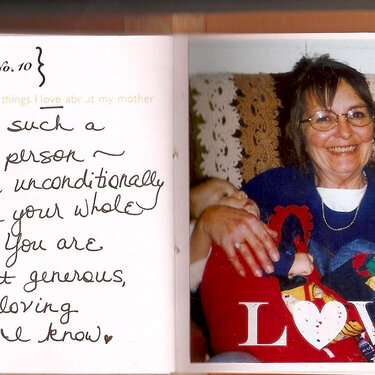 No. 10
things I love about my mother
such a
person ~
unconditionally
your whole
You are
generous,
loving
know.
LOV